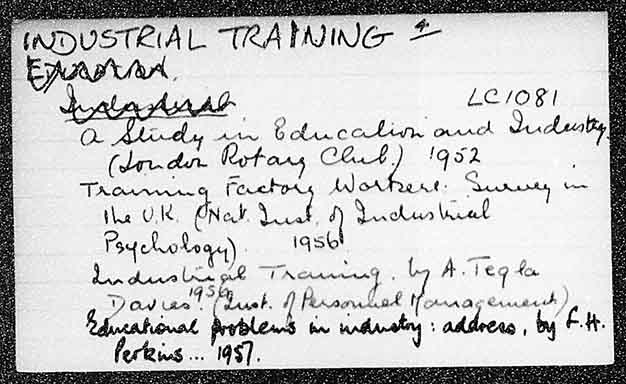 INDUSTRIAL TRAINING
Industrial
LC1081
A Study in Education and Industry.
(London Rotary Club.) 1952
Training Factory Workers. Survey in
the U.K. (Nat. Inst. of Industrial
Psychology). 1956
Industrial Training, by A. Tegla
Davies. 1956 (Inst. of Personnel Management)
Educational problems in industry: address, by F.H.
Perkins... 1957.